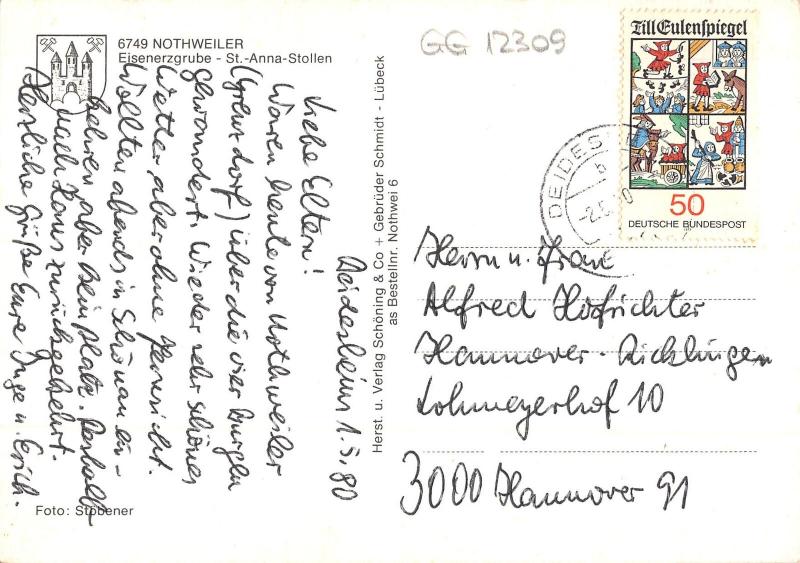 6749 NOTHWEILER
Eisenerzgrube - St.-Anna-Stollen
GG 12309
Till Eulenspiegel
50
DEUTSCHE BUNDESPOST
DEIDES
-2.5. 0
Deidesheim 1.5.80
Liebe Eltern!
Waren heute von Nothweiler
(Grenzdorf) über die vier Burgen
gewandert. Wieder sehr schönes
Wetter, aber ohne Fernsicht.
Wollten abends in Schönau ein-
kehren, aber kein Platz. Deshalb
nach Haus zurückgekehrt.
Herzliche Grüße Eure Inge u. Erich.
Foto: Stöbener
Herst. u. Verlag Schöning & Co + Gebrüder Schmidt - Lübeck
as Bestellnr. Nothwei 6
Herrn u. Frau
Alfred Hofrichter
Hannover-Ricklingen
Lohmeyerhof 10
3000 Hannover 91